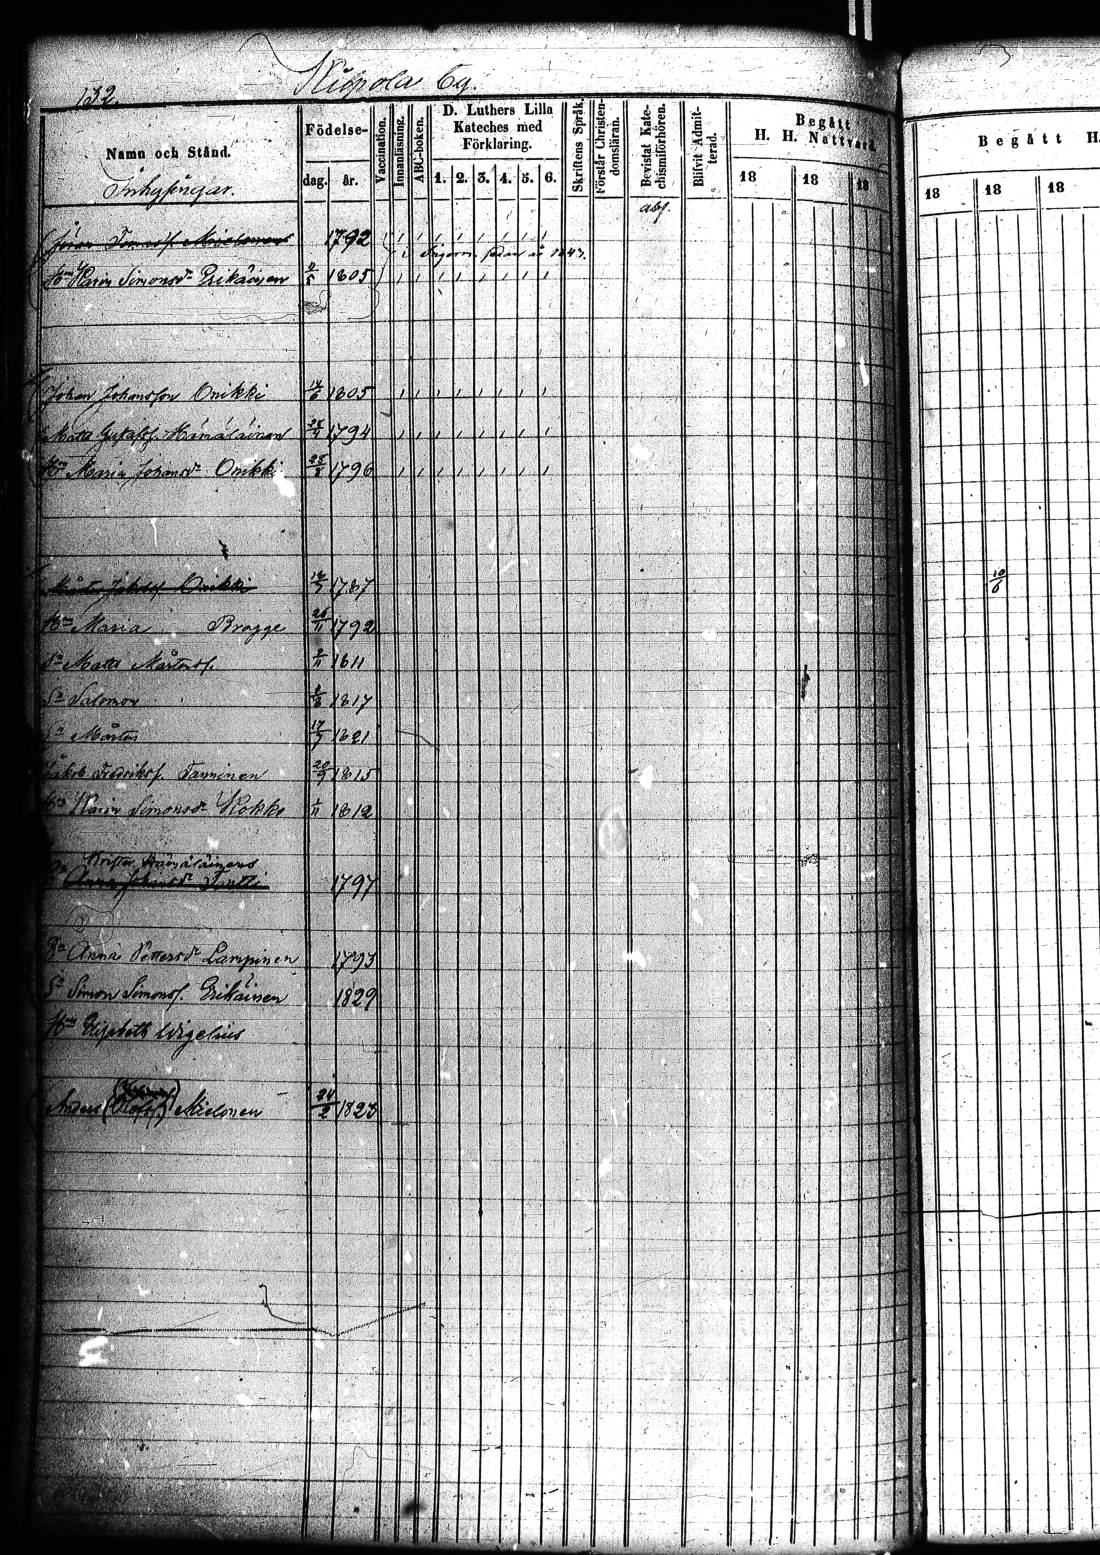 132.
Kuipola by.
Namn och Stånd.
Inhysingar.
Födelse-
dag. år.
Vaccination.
Innanläsning.
ABC-boken.
D. Luthers Lilla
Kateches med
Förklaring.
1. 2. 3. 4. 5. 6.
Skriftens Språk.
Förstår Christen-
domsläran.
Bevistat Kate-
chismiförhören.
Blifvit Admit-
terad.
Begått
H. H. Nattvard.
18 18 18
Begått H.
18 18 18
1792
Ingerm. sedan år 1843.
Hu Karin Simonsdr Erikäinen 1805
Johan Johansson Onikki 1805
Matts Gustafsf. Hämäläinen 25/4 1794
Hu Maria Johansdr Onikki 25/8 1796
Onikki 1787
10/6
Hu Maria Brogge 26/11 1792
Sn Matts Mårtensf. 1811
Sn Salomon 1817
Sn Mårten 17/7 1821
Jakob Fredriksf. Tamminen 20/9 1815
Hu Karin Simonsdr Kokko 1812
Krister Hämäläinens
Anna Johansdr 1797
Anna Pettersdr Lampinen 1793
Sn Simon Simonsf. Erikäinen 1829
Hu Elisabeth Wigelius
Anders Mielonen 24/2 1823